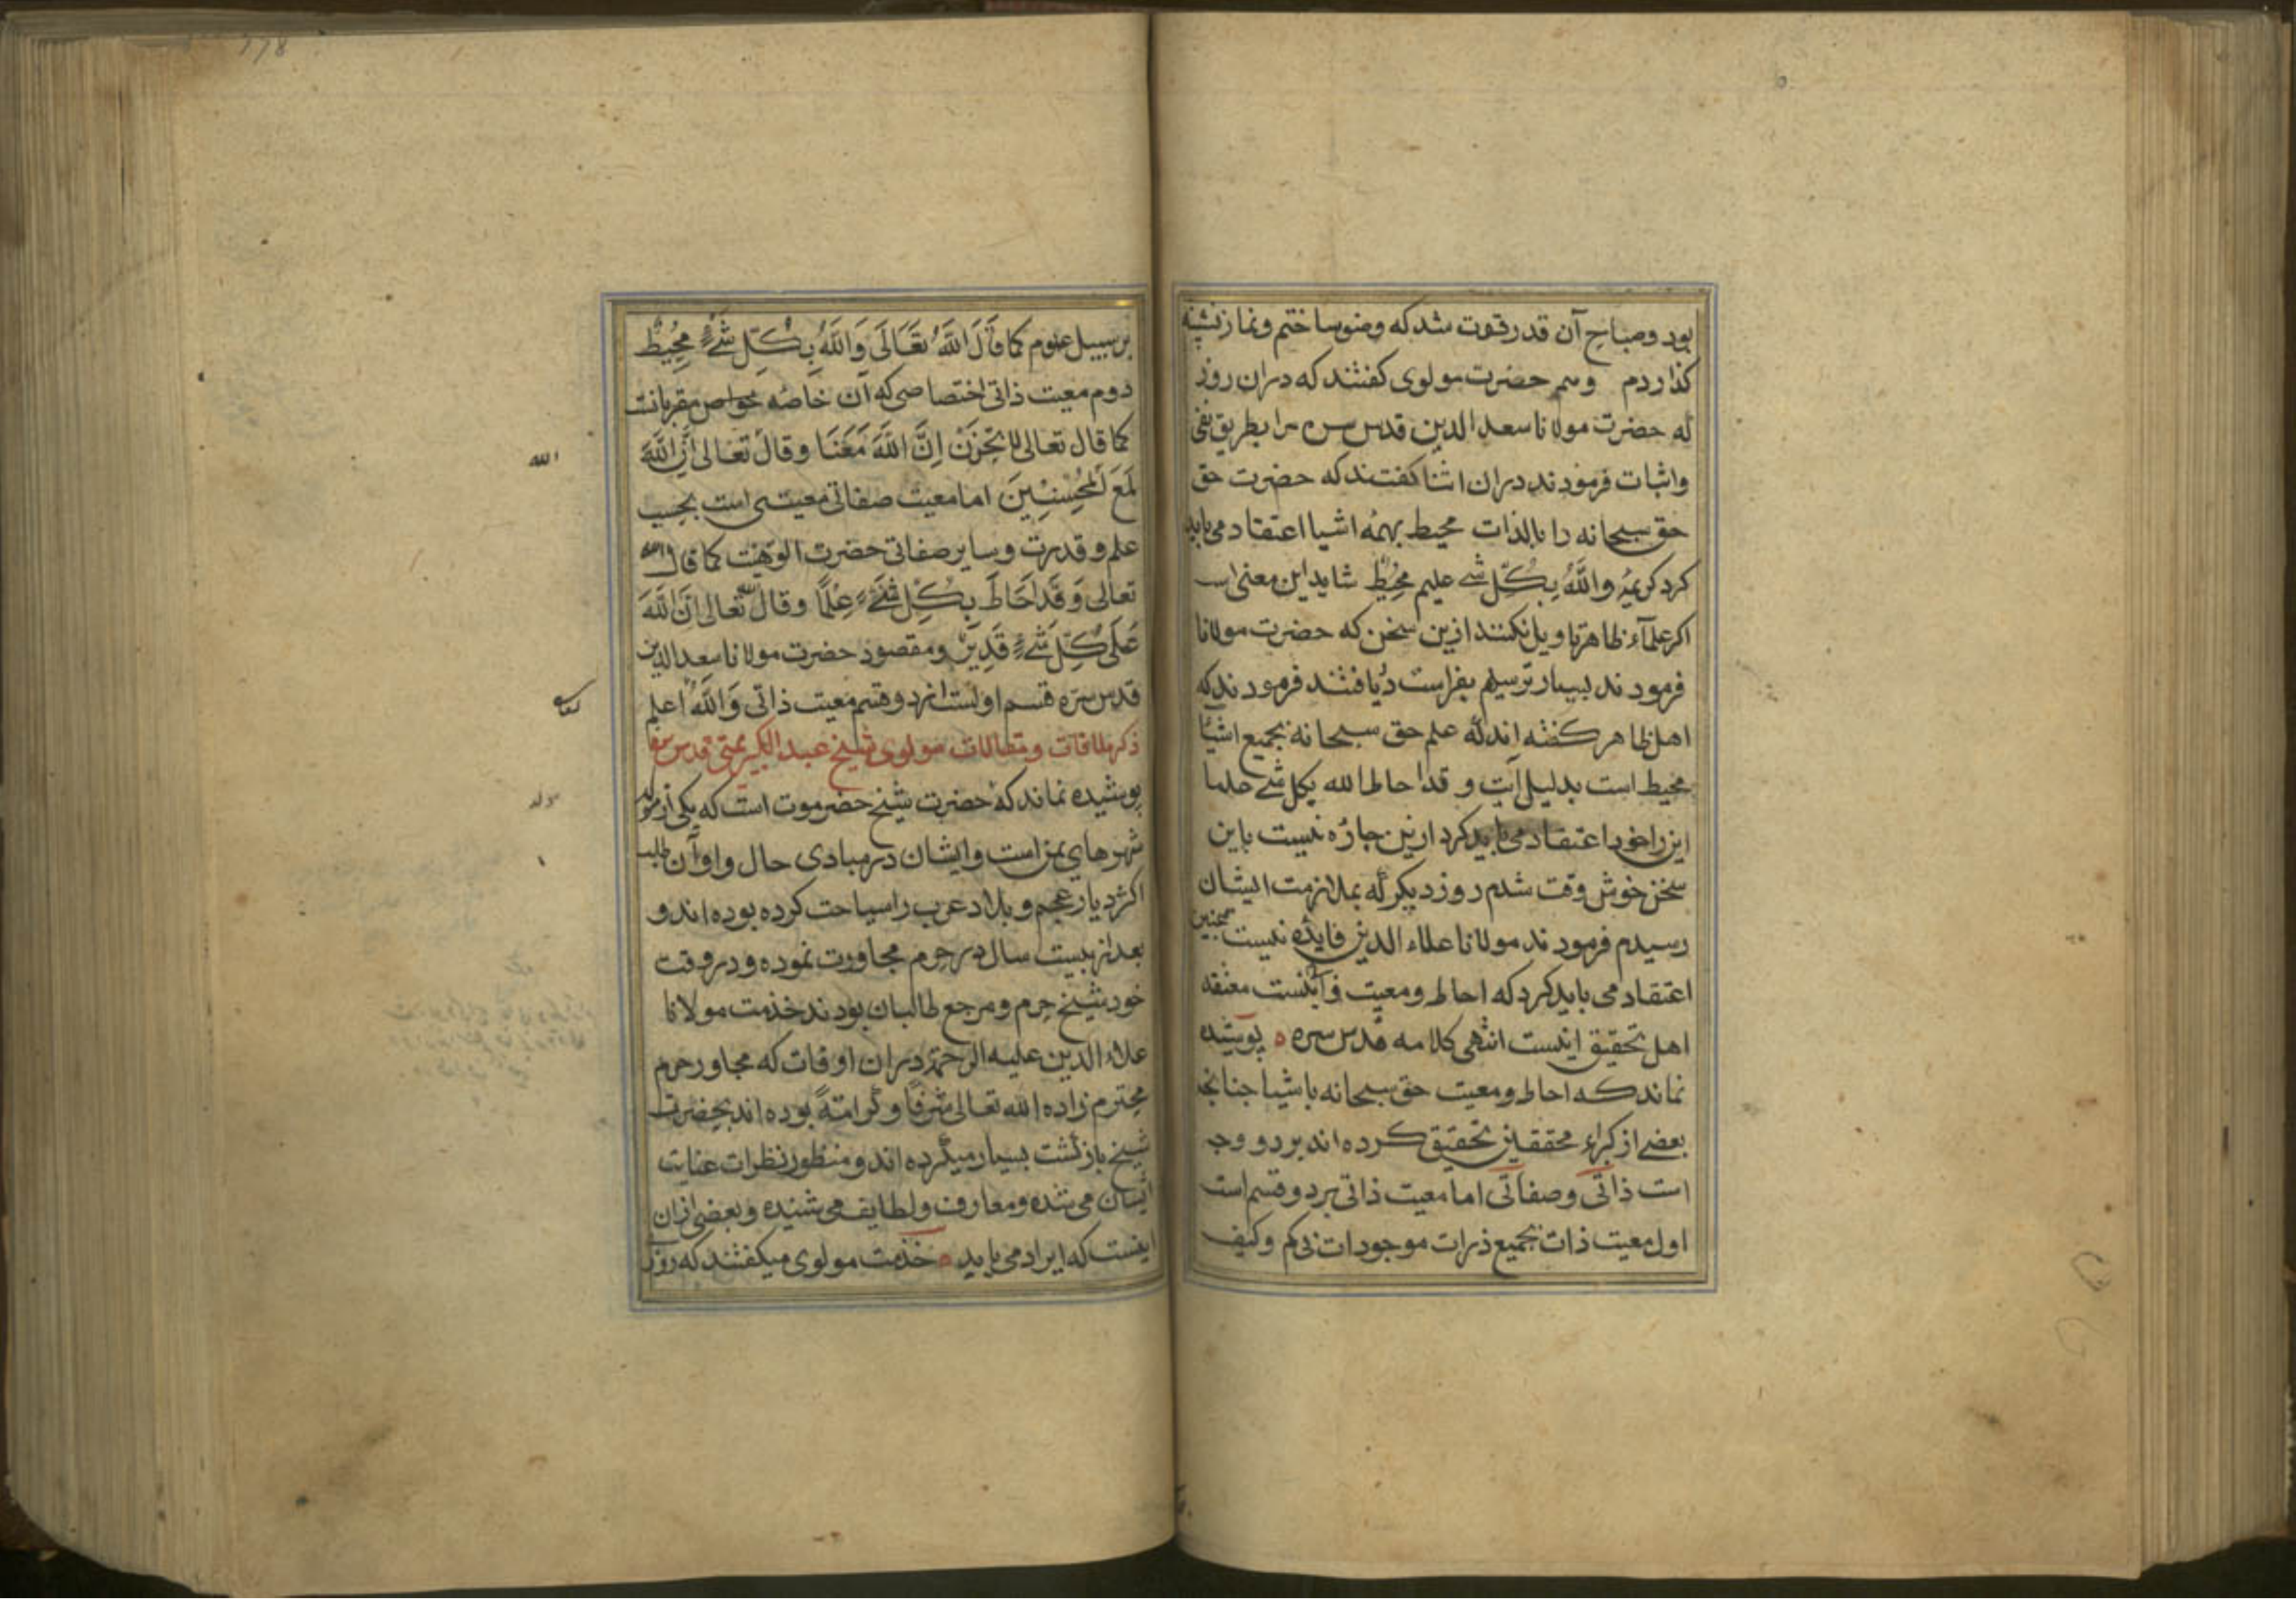 بود وصباح آن قدر قوت شد که وضو ساختم ونماز نشسته
کذاردم وهم حضرت مولوی کفتند که دران روز
که حضرت مولانا سعد الدین قدس سره مرا بطریق نفی
واثبات فرمودند دران اثنا کفتند که حضرت حق
حق سبحانه را بالذات محیط بهمهٔ اشیا اعتقاد می باید
کرد کریمهٔ والله بکل شے علیم محیط شاید این معنی است
اکر علمآء ظاهر تاویل نکنند ازین سخن که حضرت مولانا
فرمودند بسیار ترسیدم بفراست دریافتند فرمودند که
اهل ظاهر کفته اند که علم حق سبحانه بجمیع اشیا
محیط است بدلیل آیت و قد احاط الله بکل شے علما
این را خود اعتقاد می باید کرد ازین چاره نیست باین
سخن خوش وقت شدم روز دیکر که بملازمت ایشان
رسیدم فرمودند مولانا علاء الدین فایده نیست همچنین
اعتقاد می باید کرد که احاطه ومعیت ذاتیست معتقد
اهل تحقیق اینست انتهی کلامه قدس سره ه پوشیده
نماند که احاطه ومعیت حق سبحانه باشیا چنانچه
بعضے از کبراء محققین تحقیق کرده اند بر دو وجه
است ذاتی وصفاتی اما معیت ذاتی بر دو قسم است
اول معیت ذات بجمیع ذرات موجودات بی کم وکیف
۲۲۸
بر سبیل عموم کما قَالَ اللَّهُ تَعَالَى وَاللَّهُ بِكُلِّ شَيْءٍ مُحِيطٌ
دوم معیت ذاتی اختصاصی که آن خاصه خواص مقربانست
کما قال تعالی لا تحزن إنَّ اللَّهَ مَعَنَا وقال تعالی اِنَّ اللَّهَ
لَمَعَ الْمُحْسِنِينَ اما معیت صفاتی معیتی است بحسب
علم وقدرت وسایر صفاتی حضرت الوهیت کما قال الله
تعالی وَقَد اَحَاطَ بِكُلِّ شَيْءٍ عِلْمًا وقال الله تعالی اِنَّ اللَّهَ
عَلَى كُلِّ شَيْءٍ قَدِيرٌ ومقصود حضرت مولانا سعد الدین
قدس سره قسم اولست از دو قسم معیت ذاتی وَاللَّهُ اعلم
ذکر ملاقات ومقالات مولوی شیخ عبد الکبیر یمنی قدس سره
پوشیده نماند که حضرت شیخ حضرموت است که یکی از
شهرهای یمن است وایشان در مبادی حال واوآن طلب
اکثر دیار عجم وبلاد عرب را سیاحت کرده بوده اند و
بعد از بیست سال در حرم مجاورت نموده ودر وقت
خود شیخ حرم ومرجع طالبان بودند خذمت مولانا
علاء الدین علیه الرحمة دران اوقات که مجاور حرم
محترم زاده الله تعالی شرفًا وکرامةً بوده اند بحضرت
شیخ بازکشت بسیار میکرده اند ومنظور نظرات عنایت
ایشان می شده ومعارف ولطایف می شنیده وبعضی ازان
اینست که ایراد می یابد ه خذمت مولوی میکفتند که روزی
الله